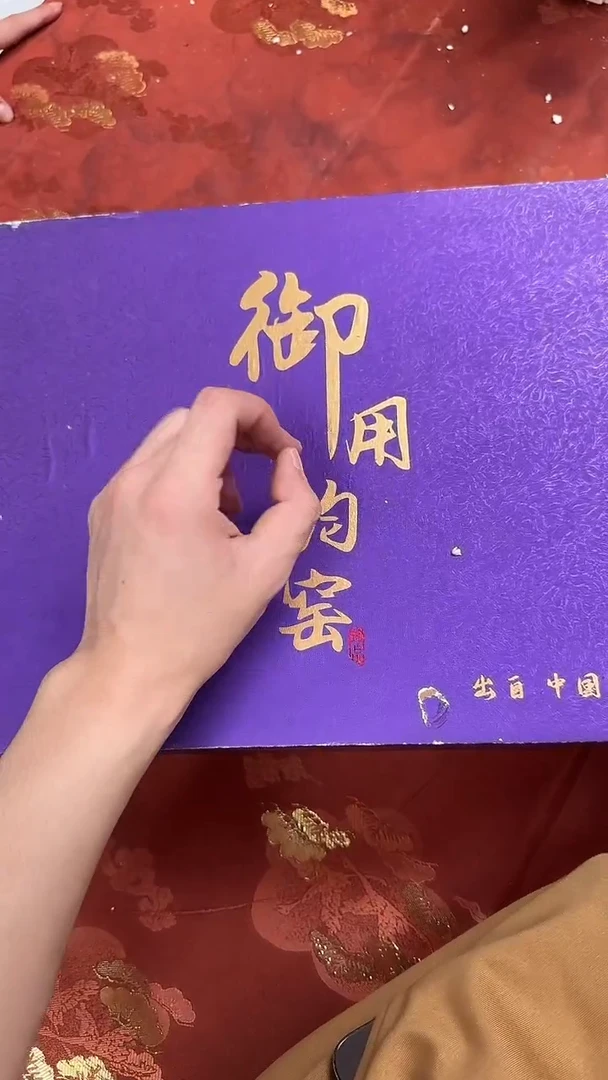 御用钧窑
出自 中國